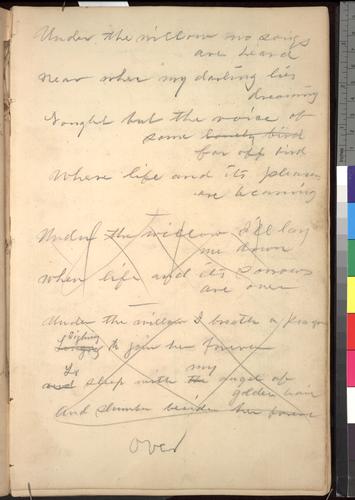 Under the willow no songs
are heard
Near where my darling lies
dreaming
Nought but the voice of
some lonely bird
far off bird
Where life and its pleasures
are beaming
Under the willow I'll lay
me down
When life and its sorrows
are over
Under the willow I breathe a prayer
Sighing
Longing to join her forever
To my
and sleep with the angel of
golden hair
And slumber beside her
Over